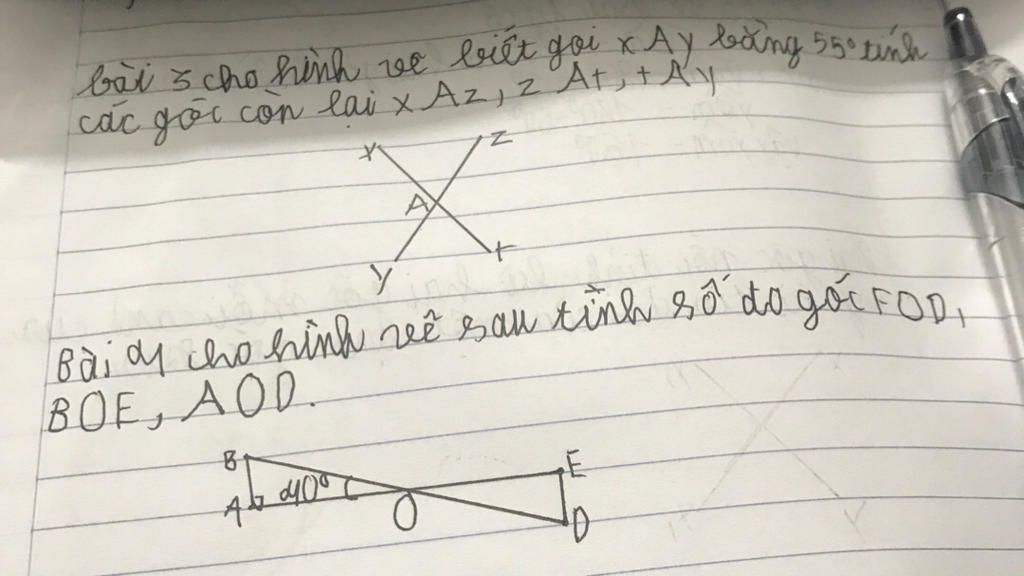 bài 3 cho hình vẽ biết gọi xAy bằng 55° tính
các gốc còn lại xAz, zAt, tAy
x
z
A
y
t
Bài 4 cho hình vẽ sau tình số đo gốc FOD,
BOE, AOD.
B
E
A 40°
O
D